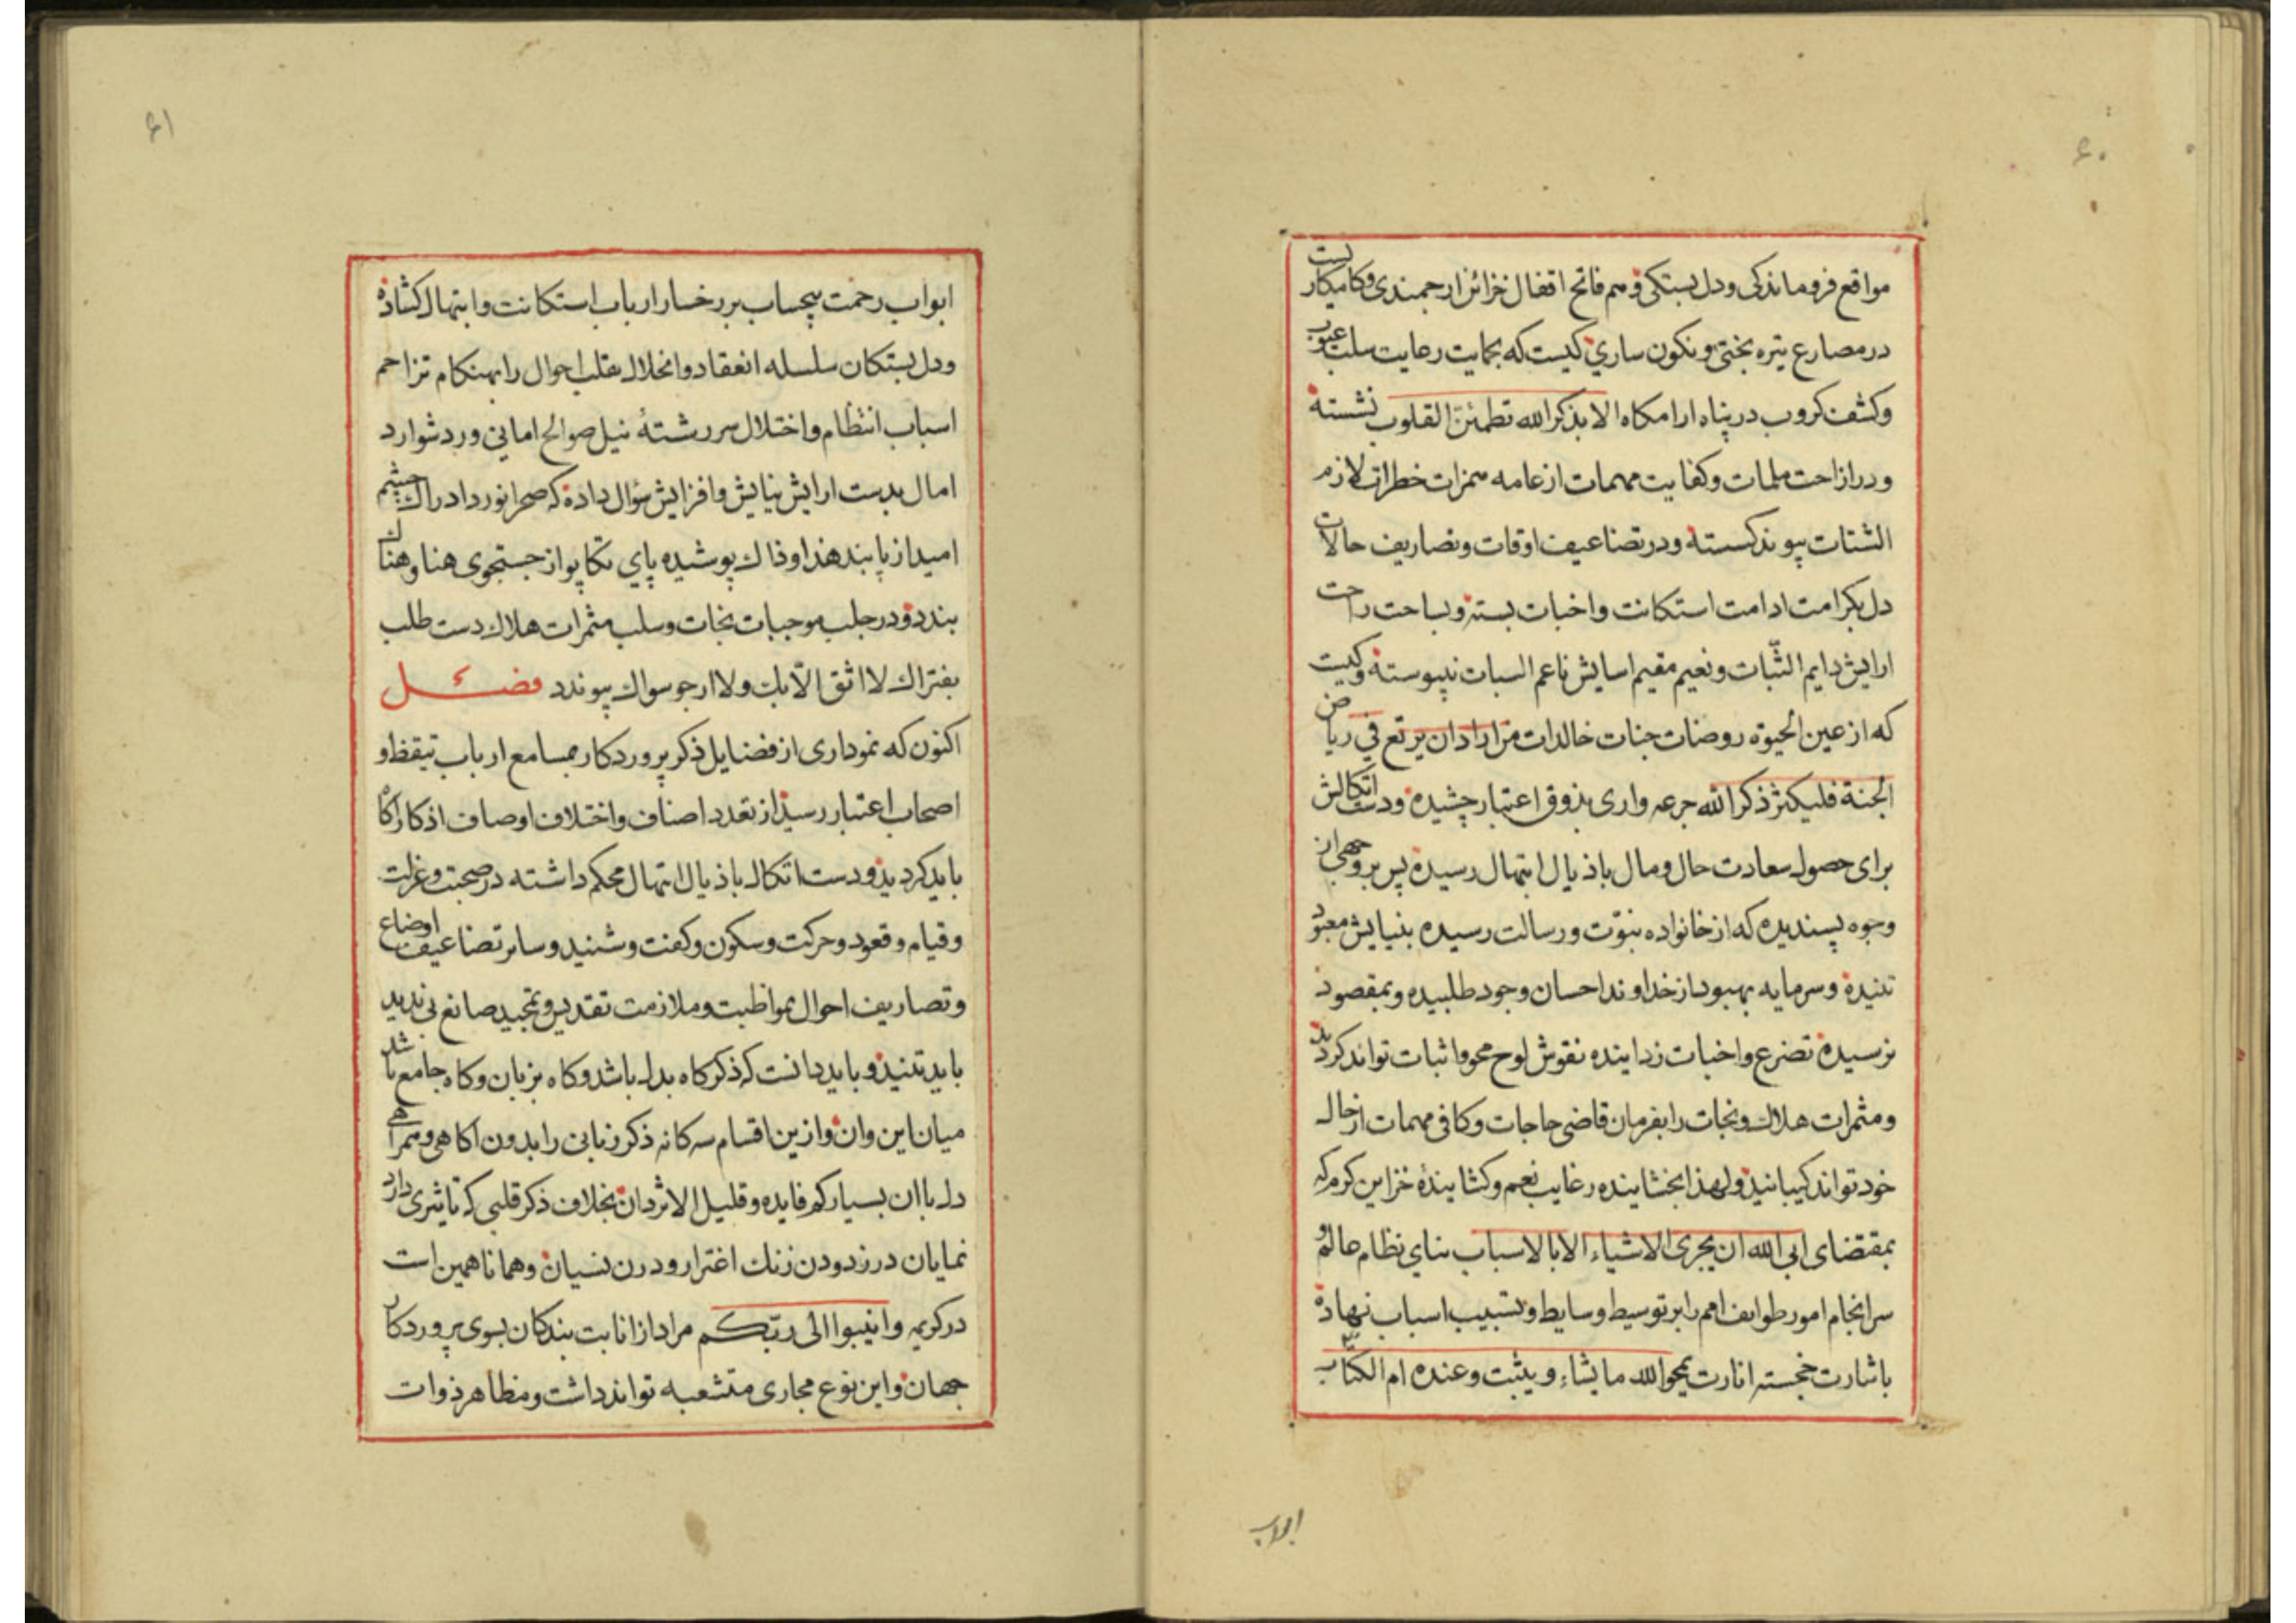 ۶۰
مواقع فروماندگی و دل بستکی و هم فاتح اقفال خزائن ارجمندی و کامیکاریست
در مصارع تیره بختی و نکون ساری کیست که بحمایت رعایت سلب عیوب
و کشف کروب در پناه ارامکاه الا بذکر الله تطمئنّ القلوب نشسته
و در ازاحت ملمات و کفایت مهمات از عامه همزات خطرات لازم
الشتات پیوند کسسته و در تضاعیف اوقات و تصاریف حالات
دل بکرامت ادامت استکانت و اخبات بسته و بساحت راحت
ارایش دایم الثّبات و نعیم مقیم اسایش ناعم السبات نپیوسته و کیست
که از عین الحیوة روضات جنات خالدات من اراد ان یرتع فی ریاض
الجنة فلیکثر ذکر الله جرعه واری بذوق اعتبار چشیده و دست اتکالش
برای حصول سعادت حال و مال باذیال ابتهال رسیده پس بر وجهی از
وجوه پسندیده که از خانواده نبوّت و رسالت رسیده بنیایش معبود
تنیده و سرمایه بهبود از خداوند احسان وجود طلبیده و بمقصود
نرسیده تضرع و اخبات زداینده نقوش لوح محو و اثبات تواند کردید
و مثمرات هلاک و نجات را بفرمان قاضی حاجات و کافی مهمات از حال
خود تواند کیبانید و لهذا بخشاینده رغایب نعم و کشایندۀ خزاین کرم که
بمقتضای ابی الله ان یجری الاشیاء الا بالاسباب بنای نظام عالم و
سرانجام امور طوایف امم را بر توسیط وسایط و تسبیب اسباب نهاده
باشارت خجسته انارت یمحو الله ما یشاء و یثبت و عنده ام الکتاب
ابواب
۶۱
ابواب رحمت بیحساب بر رخسار ارباب استکانت و ابتهال کشاده
و دل بستکان سلسله انعقاد و انحلال تقلب احوال را بهنکام تزاحم
اسباب انتظام و اختلال سررشتۀ نیل صوالح امانی و رد شوارد
امال بدست ارایش نیایش و افزایش سؤال داده که صحرا نورد ادراک چشم
امید از پابند هذا و ذاک پوشیده پای تکاپو از جستجوی هنا و هناک
بندد و در جلب موجبات نجات و سلب مثمرات هلاک دست طلب
بفتراک لا اثق الّا بک و لا ارجو سواک پیوندد فصل
اکنون که نموداری از فضایل ذکر پروردکار بمسامع ارباب تیقظ و
اصحاب اعتبار رسید از تعدد اصناف و اختلاف اوصاف اذکار اکاه
باید کردید و دست اتکال باذیال ابتهال محکم داشته در صحبت و عزلت
و قیام و قعود و حرکت و سکون و کفت و شنید و سایر تضاعیف اوضاع
و تصاریف احوال بمواظبت و ملازمت تقدیس و تمجید صانع بی ندید
باید تنید و باید دانست که ذکر کاه بدل باشد و کاه بزبان و کاه جامع باشد
میان این و آن و از ین اقسام سه کانه ذکر زبانی را بدون اکاهی و همراهی
دل با ان بسیار کم فایده و قلیل الاثر دان بخلاف ذکر قلبی که تاثیری دارد
نمایان در زدودن زنك اغترار و درن نسیان و همانا همین است
در کریمه وانیبوا الی ربّکم مراد از انابت بندکان بسوی پروردکار
جهان و این نوع مجاری متشعبه تواند داشت و مظاهر ذوات